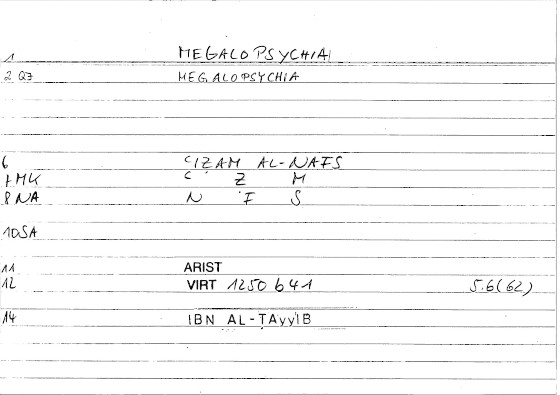 1 MEGALOPSYCHIA
2 QZ MEGALOPSYCHIA
6 ʿIẒAM AL-NAFS
7 MK ʿ Ẓ M
8 NA N F S
10 SA
11 ARIST
12 VIRT 1250 b 41 5.6(62)
14 IBN AL-ṬAyyIB